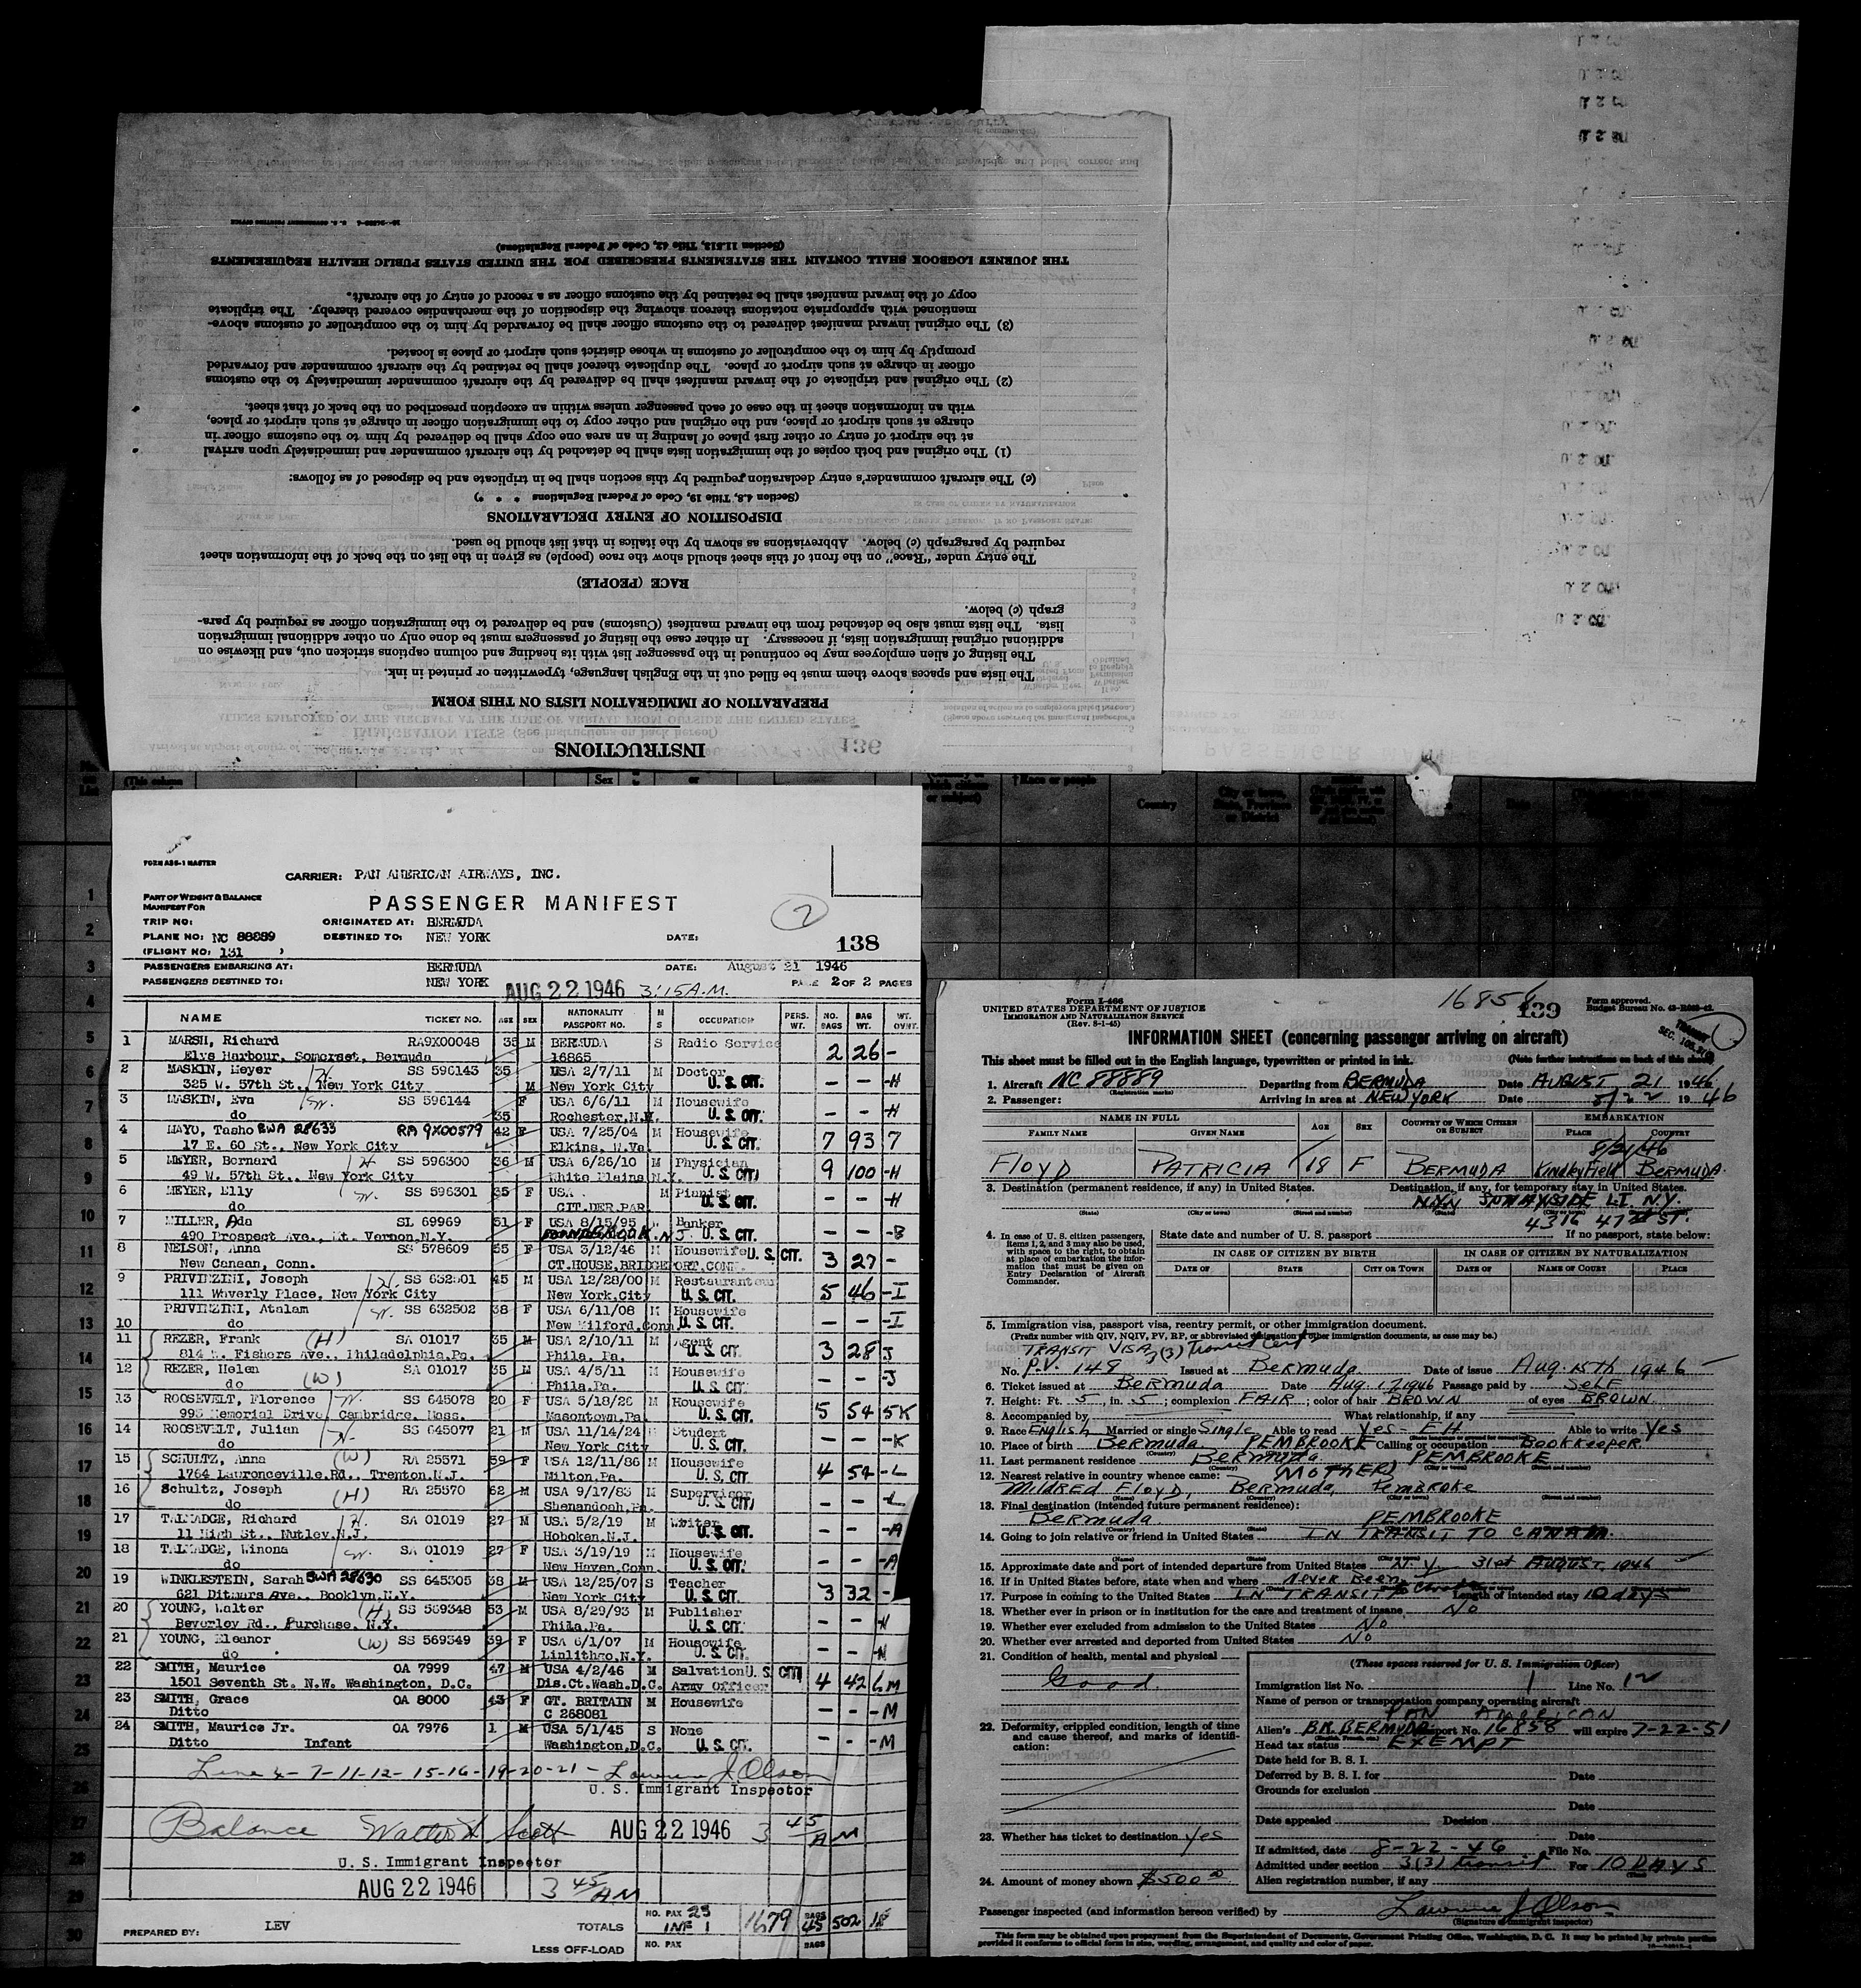 INSTRUCTIONS
136
IMMIGRATION LISTS (See instructions on back hereof)
ALIENS EMPLOYED ON THE AIRCRAFT AT THE TIME OF ARRIVAL FROM OUTSIDE THE UNITED STATES
PREPARATION OF IMMIGRATION LISTS ON THIS FORM
The lists and spaces above them must be filled out in the English language, typewritten or printed in ink.
The listing of alien employees may be continued in the passenger list with its heading and column captions stricken out, and likewise on
additional original immigration lists, if necessary. In either case the listing of passengers must be done only on other additional immigration
lists. The lists must also be detached from the inward manifest (Customs) and be delivered to the immigration officer as required by para-
graph (c) below.
RACE (PEOPLE)
The entry under "Race" on the front of this sheet should show the race (people) as given in the list on the back of the information sheet
required by paragraph (c) below. Abbreviations as shown by the italics in that list should be used.
DISPOSITION OF ENTRY DECLARATIONS
(Section 4.8, Title 19, Code of Federal Regulations * * *)
(c) The aircraft commander's entry declaration required by this section shall be in triplicate and be disposed of as follows:
(1) The original and both copies of the immigration lists shall be detached by the aircraft commander and immediately upon arrival
at the airport of entry or other first place of landing in an area one copy shall be delivered by him to the customs officer in
charge at such airport or place, and the original and other copy to the immigration officer in charge at such airport or place,
with an information sheet in the case of each passenger unless within an exception prescribed on the back of that sheet.
(2) The original and triplicate of the inward manifest shall be delivered by the aircraft commander immediately to the customs
officer in charge at such airport or place. The duplicate thereof shall be retained by the aircraft commander and forwarded
promptly by him to the comptroller of customs in whose district such airport or place is located.
(3) The original inward manifest delivered to the customs officer shall be forwarded by him to the comptroller of customs above-
mentioned with appropriate notations thereon showing the disposition of the merchandise covered thereby. The triplicate
copy of the inward manifest shall be retained by the customs officer as a record of entry of the aircraft.
THE JOURNEY LOGBOOK SHALL CONTAIN THE STATEMENTS PRESCRIBED FOR THE UNITED STATES PUBLIC HEALTH REQUIREMENTS
(Section 11.513, Title 42, Code of Federal Regulations)
FORM ASS-1 MASTER
CARRIER: PAN AMERICAN AIRWAYS, INC.
PART OF WEIGHT & BALANCE
MANIFEST FOR
PASSENGER MANIFEST
2
TRIP NO: ORIGINATED AT: BERMUDA
PLANE NO: NC 88889 DESTINED TO: NEW YORK DATE: 138
(FLIGHT NO: 131 )
PASSENGERS EMBARKING AT: BERMUDA DATE: August 21 1946
PASSENGERS DESTINED TO: NEW YORK AUG 22 1946 3:15 A.M. PAGE 2 OF 2 PAGES
NAME TICKET NO. AGE SEX NATIONALITY PASSPORT NO. M S OCCUPATION PERS. WT. NO. BAGS BAG WT. WT. OVWT.
1 MARSH, Richard RA9X00048 35 M BERMUDA S Radio Service
Elys Harbour, Somerset, Bermuda 16865 2 26 -
2 MASKIN, Meyer H. SS 596143 35 USA 2/7/11 M Doctor
325 W. 57th St., New York City M New York City U. S. CIT. - - -H
3 MASKIN, Eva W. SS 596144 F USA 6/6/11 M Housewife
do 35 Rochester, N.Y. U. S. CIT. - - -H
4 MAYO, Tasho BWA 28633 RA 9X00579 42 F USA 7/25/04 M Housewife
17 E. 60 St., New York City Elkins, W.Va. U. S. CIT. 7 93 7
5 MEYER, Bernard H SS 596300 36 M USA 6/26/10 M Physician
49 W. 57th St., New York City White Plains N.Y. U. S. CIT. 9 100 -H
6 MEYER, Elly W. SS 596301 35 F USA M Pianist
do CIT.DER.PAR. U. S. CIT. - - -H
7 MILLER, Ada SL 69969 51 F USA 8/15/95 Banker
490 Prospect Ave., Mt. Vernon, N.Y. N.J. U. S. CIT. - - -B
8 NELSON, Anna SS 578609 55 F USA 3/12/46 M Housewife U. S. CIT.
New Canaan, Conn. CT.HOUSE, BRIDGEPORT, CONN. 3 27 -
9 PRIVINZINI, Joseph H SS 632501 45 M USA 12/28/00 M Restaurateur
111 Waverly Place, New York City New York, City U. S. CIT. 5 46 -I
PRIVINZINI, Atalam W. SS 632502 38 F USA 6/11/08 M Housewife
10 do New Milford, Conn U. S. CIT. - - -I
11 REZER, Frank (H) SA 01017 35 M USA 2/10/11 M Agent
814 W. Fishers Ave., Philadelphia, Pa. Phila. Pa. U. S. CIT. 3 28 J
12 REZER, Helen SA 01017 35 M USA 4/5/11 M Housewife
do (W) Phila. Pa. U. S. CIT. - - -J
13 ROOSEVELT, Florence W. SS 645078 20 F USA 5/18/26 M Housewife
993 Memorial Drive, Cambridge, Mass. Masontown, Pa. U. S. CIT. 5 54 5K
14 ROOSEVELT, Julian H. SS 645077 21 M USA 11/14/24 Student
do New York City U. S. CIT. - - -K
15 SCHULTZ, Anna (W) RA 25571 59 F USA 12/11/86 M Housewife
1764 Lawrenceville Rd., Trenton, N.J. Milton, Pa. U. S. CIT. 4 54 -L
16 Schultz, Joseph (H) RA 25570 62 M USA 9/17/83 M Supervisor
do Shenandoah, Pa. U. S. CIT. - - -L
17 TALMADGE, Richard H. SA 01019 27 M USA 5/2/19 M Writer
11 High St., Nutley, N.J. Hoboken, N.J. U. S. CIT. - - -A
18 TALMADGE, Winona W. SA 01019 27 F USA 3/19/19 M Housewife
do New Haven, Conn. U. S. CIT. - - -A
19 WINKLESTEIN, Sarah BWA 28630 SS 645305 38 M USA 12/25/07 S Teacher
621 Ditmars Ave., Booklyn, N.Y. New York City U. S. CIT. 3 32 -
20 YOUNG, Walter (H) SS 569348 53 M USA 8/29/93 M Publisher
Beverley Rd., Purchase, N.Y. Phila. Pa. U. S. CIT. - - -N
21 YOUNG, Eleanor (W) SS 569349 39 F USA 6/1/07 M Housewife
do Linlithgo, N.Y. U. S. CIT. - - -N
22 SMITH, Maurice OA 7999 47 M USA 4/2/46 M Salvation U. S. CIT.
1501 Seventh St. N.W. Washington, D.C. Dis.Ct.Wash.D.C. Army Officer 4 42 6M
23 SMITH, Grace OA 8000 43 F GT. BRITAIN M Housewife
Ditto C 268081 - - -M
24 SMITH, Maurice Jr. OA 7976 1 M USA 5/1/45 S None
Ditto Infant Washington, D.C. U. S. CIT. - - -M
Line 4-7-11-12-15-16-19-20-21 - Lawrence J Olson
U. S. Immigrant Inspector
Balance Walter H Scott AUG 22 1946 3 45/AM
U. S. Immigrant Inspector
AUG 22 1946 3 45/AM
PREPARED BY: LEV TOTALS NO. PAX 23 INF 1 1679 BAGS 45 502 18
LESS OFF-LOAD NO. PAX BAGS
Form I-466
UNITED STATES DEPARTMENT OF JUSTICE
IMMIGRATION AND NATURALIZATION SERVICE
(Rev. 8-1-45)
16858 139
Form approved.
Budget Bureau No. 43-R069-42.
INFORMATION SHEET (concerning passenger arriving on aircraft)
TRANSIT
This sheet must be filled out in the English language, typewritten or printed in ink. (Note further instructions on back of this sheet)
1. Aircraft NC 88889 (Registration marks) Departing from BERMUDA Date AUGUST 21 1946
2. Passenger: Arriving in area at NEW YORK Date 8/22 1946
NAME IN FULL AGE SEX COUNTRY OF WHICH CITIZEN OR SUBJECT EMBARKATION
FAMILY NAME GIVEN NAME PLACE COUNTRY
8/21/46
FLOYD PATRICIA 18 F BERMUDA Kindley Field BERMUDA
3. Destination (permanent residence, if any) in United States. Destination, if any, for temporary stay in United States.
SUNNYSIDE L.I. N.Y.
(State) (City or town) (Street and number) 4316 47th ST.
4. In case of U. S. citizen passengers, Items 1, 2, and 3 may also be used, with space to the right, to obtain at place of embarkation the information that must be given on Entry Declaration of Aircraft Commander.
State date and number of U. S. passport If no passport, state below:
IN CASE OF CITIZEN BY BIRTH IN CASE OF CITIZEN BY NATURALIZATION
DATE OF STATE CITY OR TOWN DATE OF NAME OF COURT PLACE
5. Immigration visa, passport visa, reentry permit, or other immigration document.
(Prefix number with QIV, NQIV, PV, RP, or abbreviated designation of other immigration documents, as case may be.)
TRANSIT VISA 3(3) Transit Cert
No. P.V. 148 Issued at Bermuda Date of issue Aug. 15th 1946
6. Ticket issued at Bermuda Date Aug. 17 1946 Passage paid by Self
7. Height: Ft. 5, in. 5; complexion FAIR; color of hair BROWN of eyes BROWN
8. Accompanied by What relationship, if any
9. Race English Married or single Single Able to read Yes - EH Able to write Yes
10. Place of birth Bermuda PEMBROOKE Calling or occupation Bookkeeper
11. Last permanent residence Bermuda PEMBROOKE
12. Nearest relative in country whence came: (MOTHER)
Mildred Floyd, Bermuda, Pembroke
13. Final destination (intended future permanent residence):
Bermuda PEMBROOKE
14. Going to join relative or friend in United States IN TRANSIT TO CANADA.
15. Approximate date and port of intended departure from United States N.Y. 31st AUGUST, 1946
16. If in United States before, state when and where Never Been
17. Purpose in coming to the United States IN TRANSIT to Canada Length of intended stay 10 days
18. Whether ever in prison or in institution for the care and treatment of insane No
19. Whether ever excluded from admission to the United States No
20. Whether ever arrested and deported from United States No
21. Condition of health, mental and physical
Good.
22. Deformity, crippled condition, length of time and cause thereof, and marks of identification:
23. Whether has ticket to destination yes
24. Amount of money shown $500.00
(These spaces reserved for U. S. Immigration Officer)
Immigration list No. 1 Line No. 12
Name of person or transportation company operating aircraft
PAN AMERICAN
Alien's BR. BERMUDA passport No. 16858 will expire 7-22-51
Head tax status EXEMPT
Date held for B. S. I.
Deferred by B. S. I. for Date
Grounds for exclusion
Date
Date appealed Decision
Date
If admitted, date 8-22-46 File No.
Admitted under section 3(3) transit For 10 DAYS
Alien registration number, if any
Passenger inspected (and information hereon verified) by Lawrence J Olson
(Signature of immigrant inspector)
This form may be obtained upon prepayment from the Superintendent of Documents, Government Printing Office, Washington, D. C. It may be printed by private parties
provided it conforms to official form in size, wording, arrangement, and quality and color of paper.